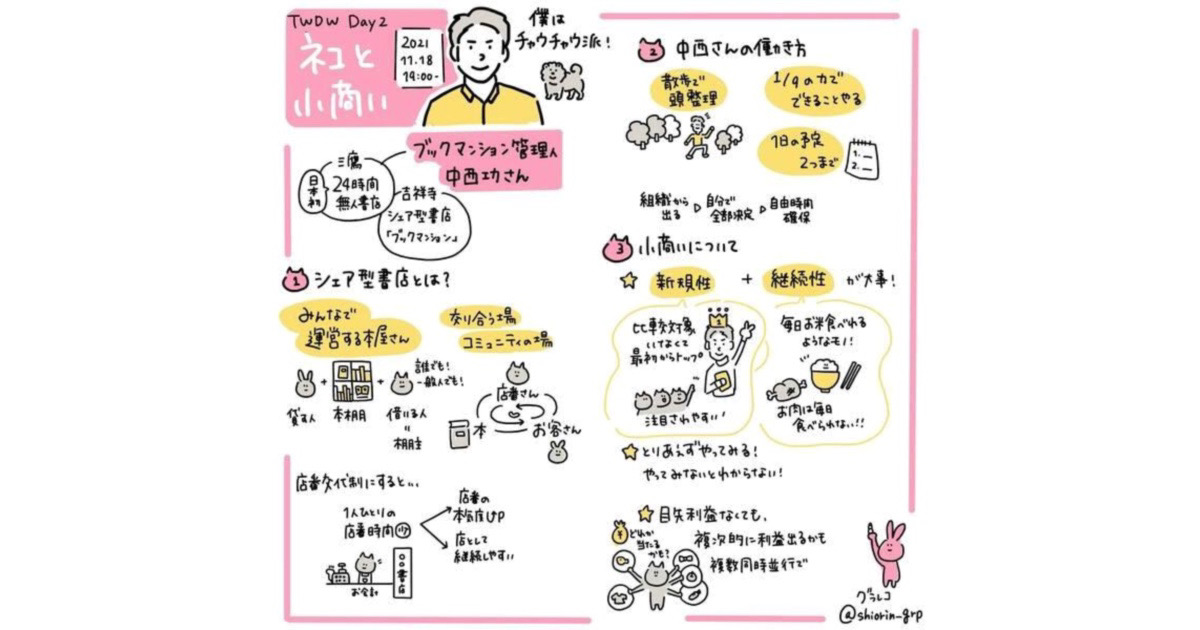 TWDW Day2
ネコと
小商い
2021
11.18
19:00-
僕は
チャウチャウ派!
ブックマンション管理人
中西功さん
日本初
三鷹
24時間
無人書店
吉祥寺
シェア型書店
「ブックマンション」
1 シェア型書店とは?
みんなで
運営する本屋さん
誰でも!
一般人でも!
貸す人
+
本棚
+
借りる人
=
棚主
交り合う場
コミュニティの場
店番さん
本
お客さん
店番交代制にすると…
1人ひとりの
店番時間小
店番の
本気度UP
店として
継続しやすい
お会計
〇〇書店
2 中西さんの働き方
散歩で
頭整理
1/9の力で
できることやる
1日の予定
2つまで
1.
2.
組織から
出る
自分で
全部決定
自由時間
確保
3 小商いについて
新規性 + 継続性 が大事!
比較対象
いなくて
最初からトップ。
1
注目されやすい!
毎日お米食べれる
ようなモノ!
お肉は毎日
食べられない!!
とりあえずやってみる!
やってみないとわからない!
目先利益なくても、
複次的に利益出るかも
複数同時並行で
¥
どれか
当たる
かも?
グラレコ
@shiorin_grp